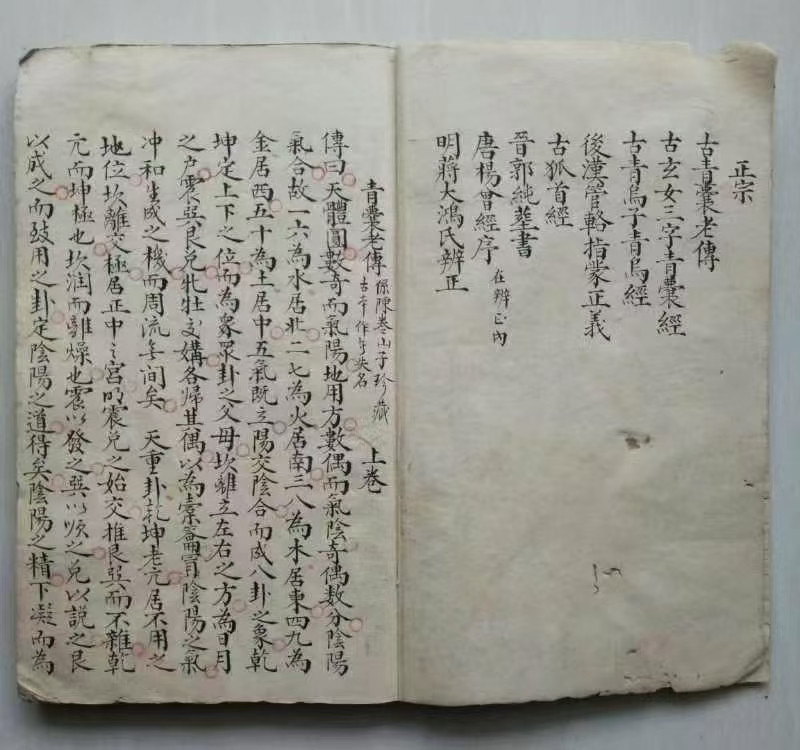 正宗
古青囊老傳
古玄女三字青囊經
古青烏子青烏經
後漢管輅指蒙正義
古狐首經
晉郭純葬書
唐楊曾經序 在辨正內
明蔣大鴻氏辨正
青囊老傳 係陳卷山子珍藏 古本作年失名 上卷
傳曰天體圓數竒而氣陽地用方數偶而氣陰竒偶数分陰陽
氣合故一六為水居北二七為火居南三八為木居東四九為
金居西五十為土居中五氣既立陽交陰合而成八卦之象乾
坤定上下之位而為眾卦之父母坎離立左右之方為日月
之户震巽艮兑牝牡交媾各歸其偶以為橐籥冒陰陽之氣
冲和生成之機而周流無间矣 天重卦乾坤老亢居不用之
地位坎離交極居正中之宮明震兑之始交推艮巽而不雜乾
亢而坤極也坎润而離燥也震以發之巽以順之兑以説之艮
以成之而致用之卦定陰陽之道得矣陰陽之精下凝而為